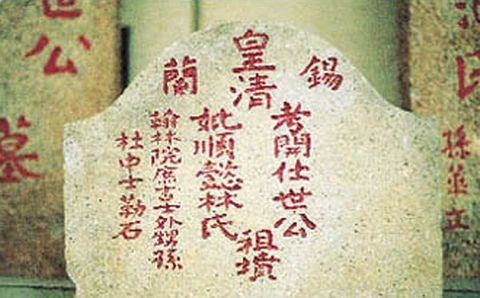 氏
孫並立
錫
皇清
蘭
考開仕世公
妣順懿林氏
祖墳
翰林院庶吉士外甥孫
杜申士勒石
世公
墓